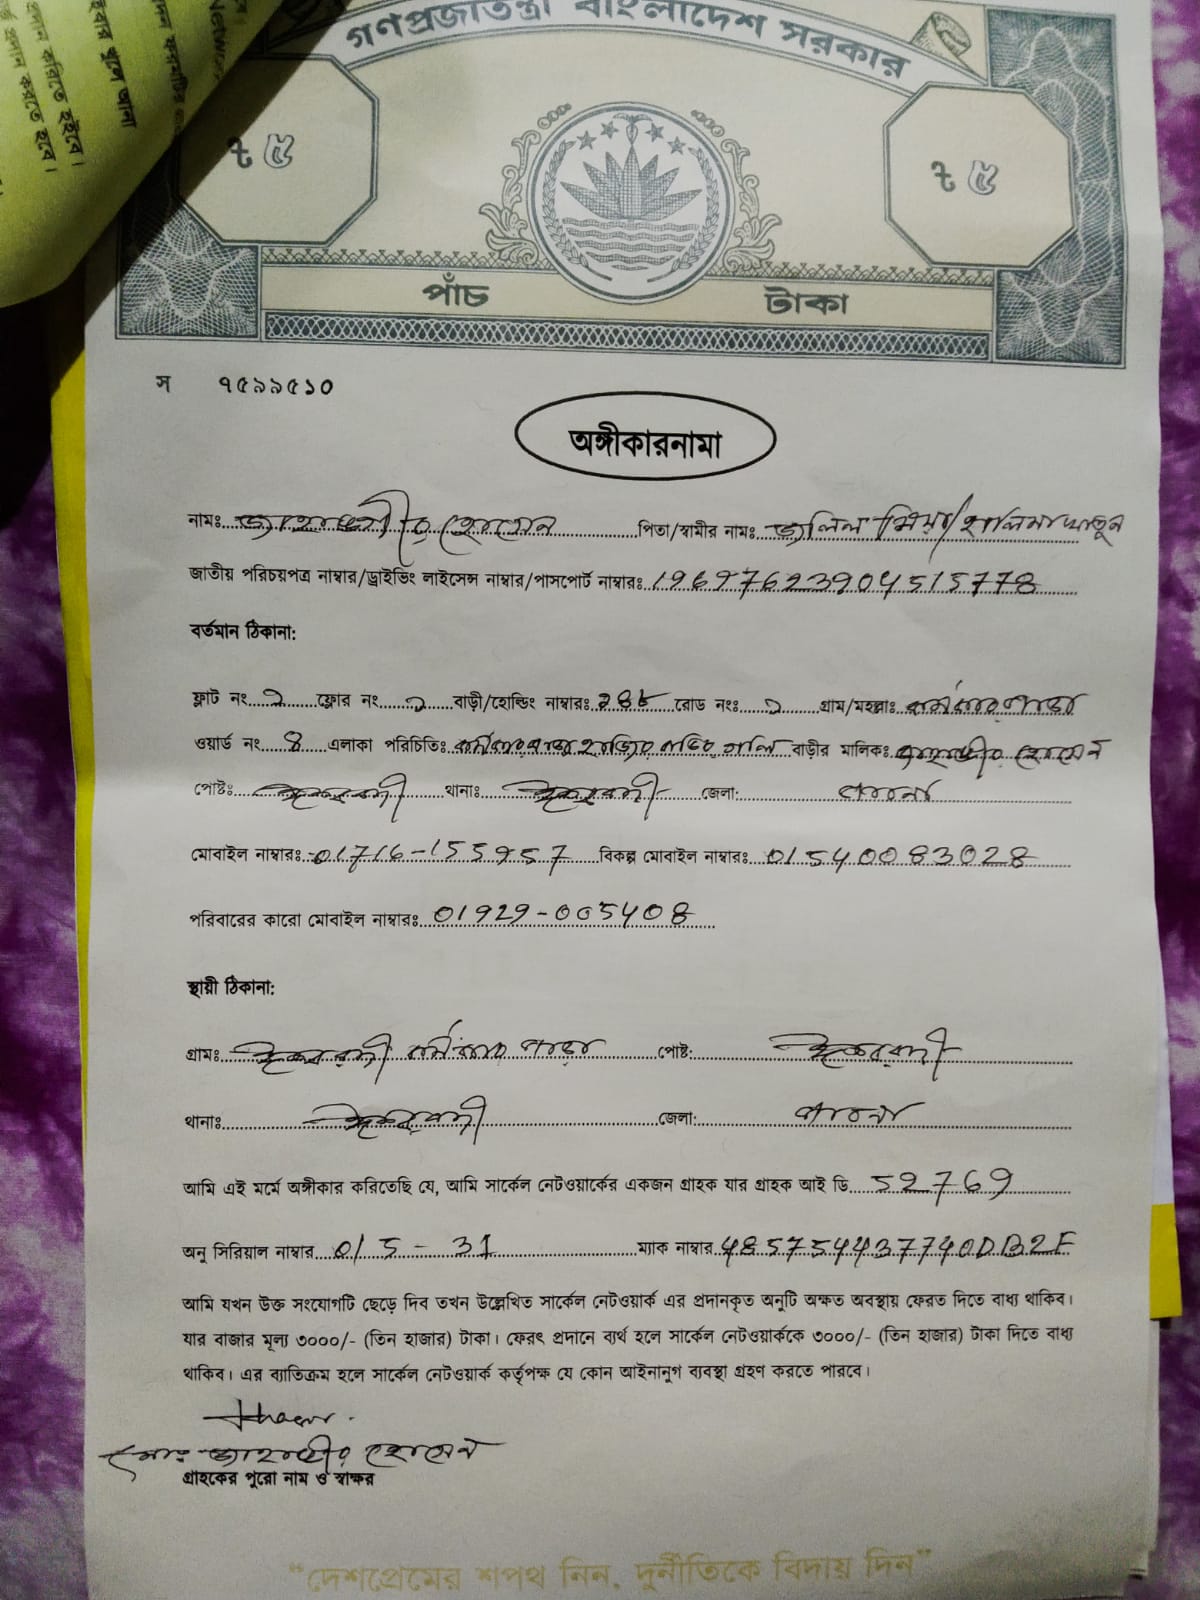 গণপ্রজাতন্ত্রী বাংলাদেশ সরকার
৳ ৫ ৳ ৫
পাঁচ টাকা
স ৭৫৯৯৫১০
অঙ্গীকারনামা
নামঃ জাহাঙ্গীর হোসেন পিতা/স্বামীর নামঃ জলিল মিয়া/হালিমা খাতুন
জাতীয় পরিচয়পত্র নাম্বার/ড্রাইভিং লাইসেন্স নাম্বার/পাসপোর্ট নাম্বারঃ 19697623904515778
বর্তমান ঠিকানা:
ফ্লাট নং ফ্লোর নং বাড়ী/হোল্ডিং নাম্বারঃ রোড নংঃ গ্রাম/মহল্লাঃ কর্মকার পাড়া
ওয়ার্ড নং ৪ এলাকা পরিচিতিঃ বাড়ীর মালিকঃ জাহাঙ্গীর হোসেন
পোষ্টঃ ঈশ্বরদী থানাঃ ঈশ্বরদী জেলা: পাবনা
মোবাইল নাম্বারঃ 01716-155957 বিকল্প মোবাইল নাম্বারঃ 01540083028
পরিবারের কারো মোবাইল নাম্বারঃ 01929-005408
স্থায়ী ঠিকানা:
গ্রামঃ ঈশ্বরদী কর্মকার পাড়া পোষ্ট: ঈশ্বরদী
থানাঃ ঈশ্বরদী জেলা: পাবনা
আমি এই মর্মে অঙ্গীকার করিতেছি যে, আমি সার্কেল নেটওয়ার্কের একজন গ্রাহক যার গ্রাহক আই ডি 52769
অনু সিরিয়াল নাম্বার 015-31 ম্যাক নাম্বার 485754437740DB2F
আমি যখন উক্ত সংযোগটি ছেড়ে দিব তখন উল্লেখিত সার্কেল নেটওয়ার্ক এর প্রদানকৃত অনুটি অক্ষত অবস্থায় ফেরত দিতে বাধ্য থাকিব।
যার বাজার মূল্য ৩০০০/- (তিন হাজার) টাকা। ফেরৎ প্রদানে ব্যর্থ হলে সার্কেল নেটওয়ার্ককে ৩০০০/- (তিন হাজার) টাকা দিতে বাধ্য
থাকিব। এর ব্যাতিক্রম হলে সার্কেল নেটওয়ার্ক কর্তৃপক্ষ যে কোন আইনানুগ ব্যবস্থা গ্রহণ করতে পারবে।
মোঃ জাহাঙ্গীর হোসেন
গ্রাহকের পুরো নাম ও স্বাক্ষর
"দেশপ্রেমের শপথ নিন, দুর্নীতিকে বিদায় দিন"